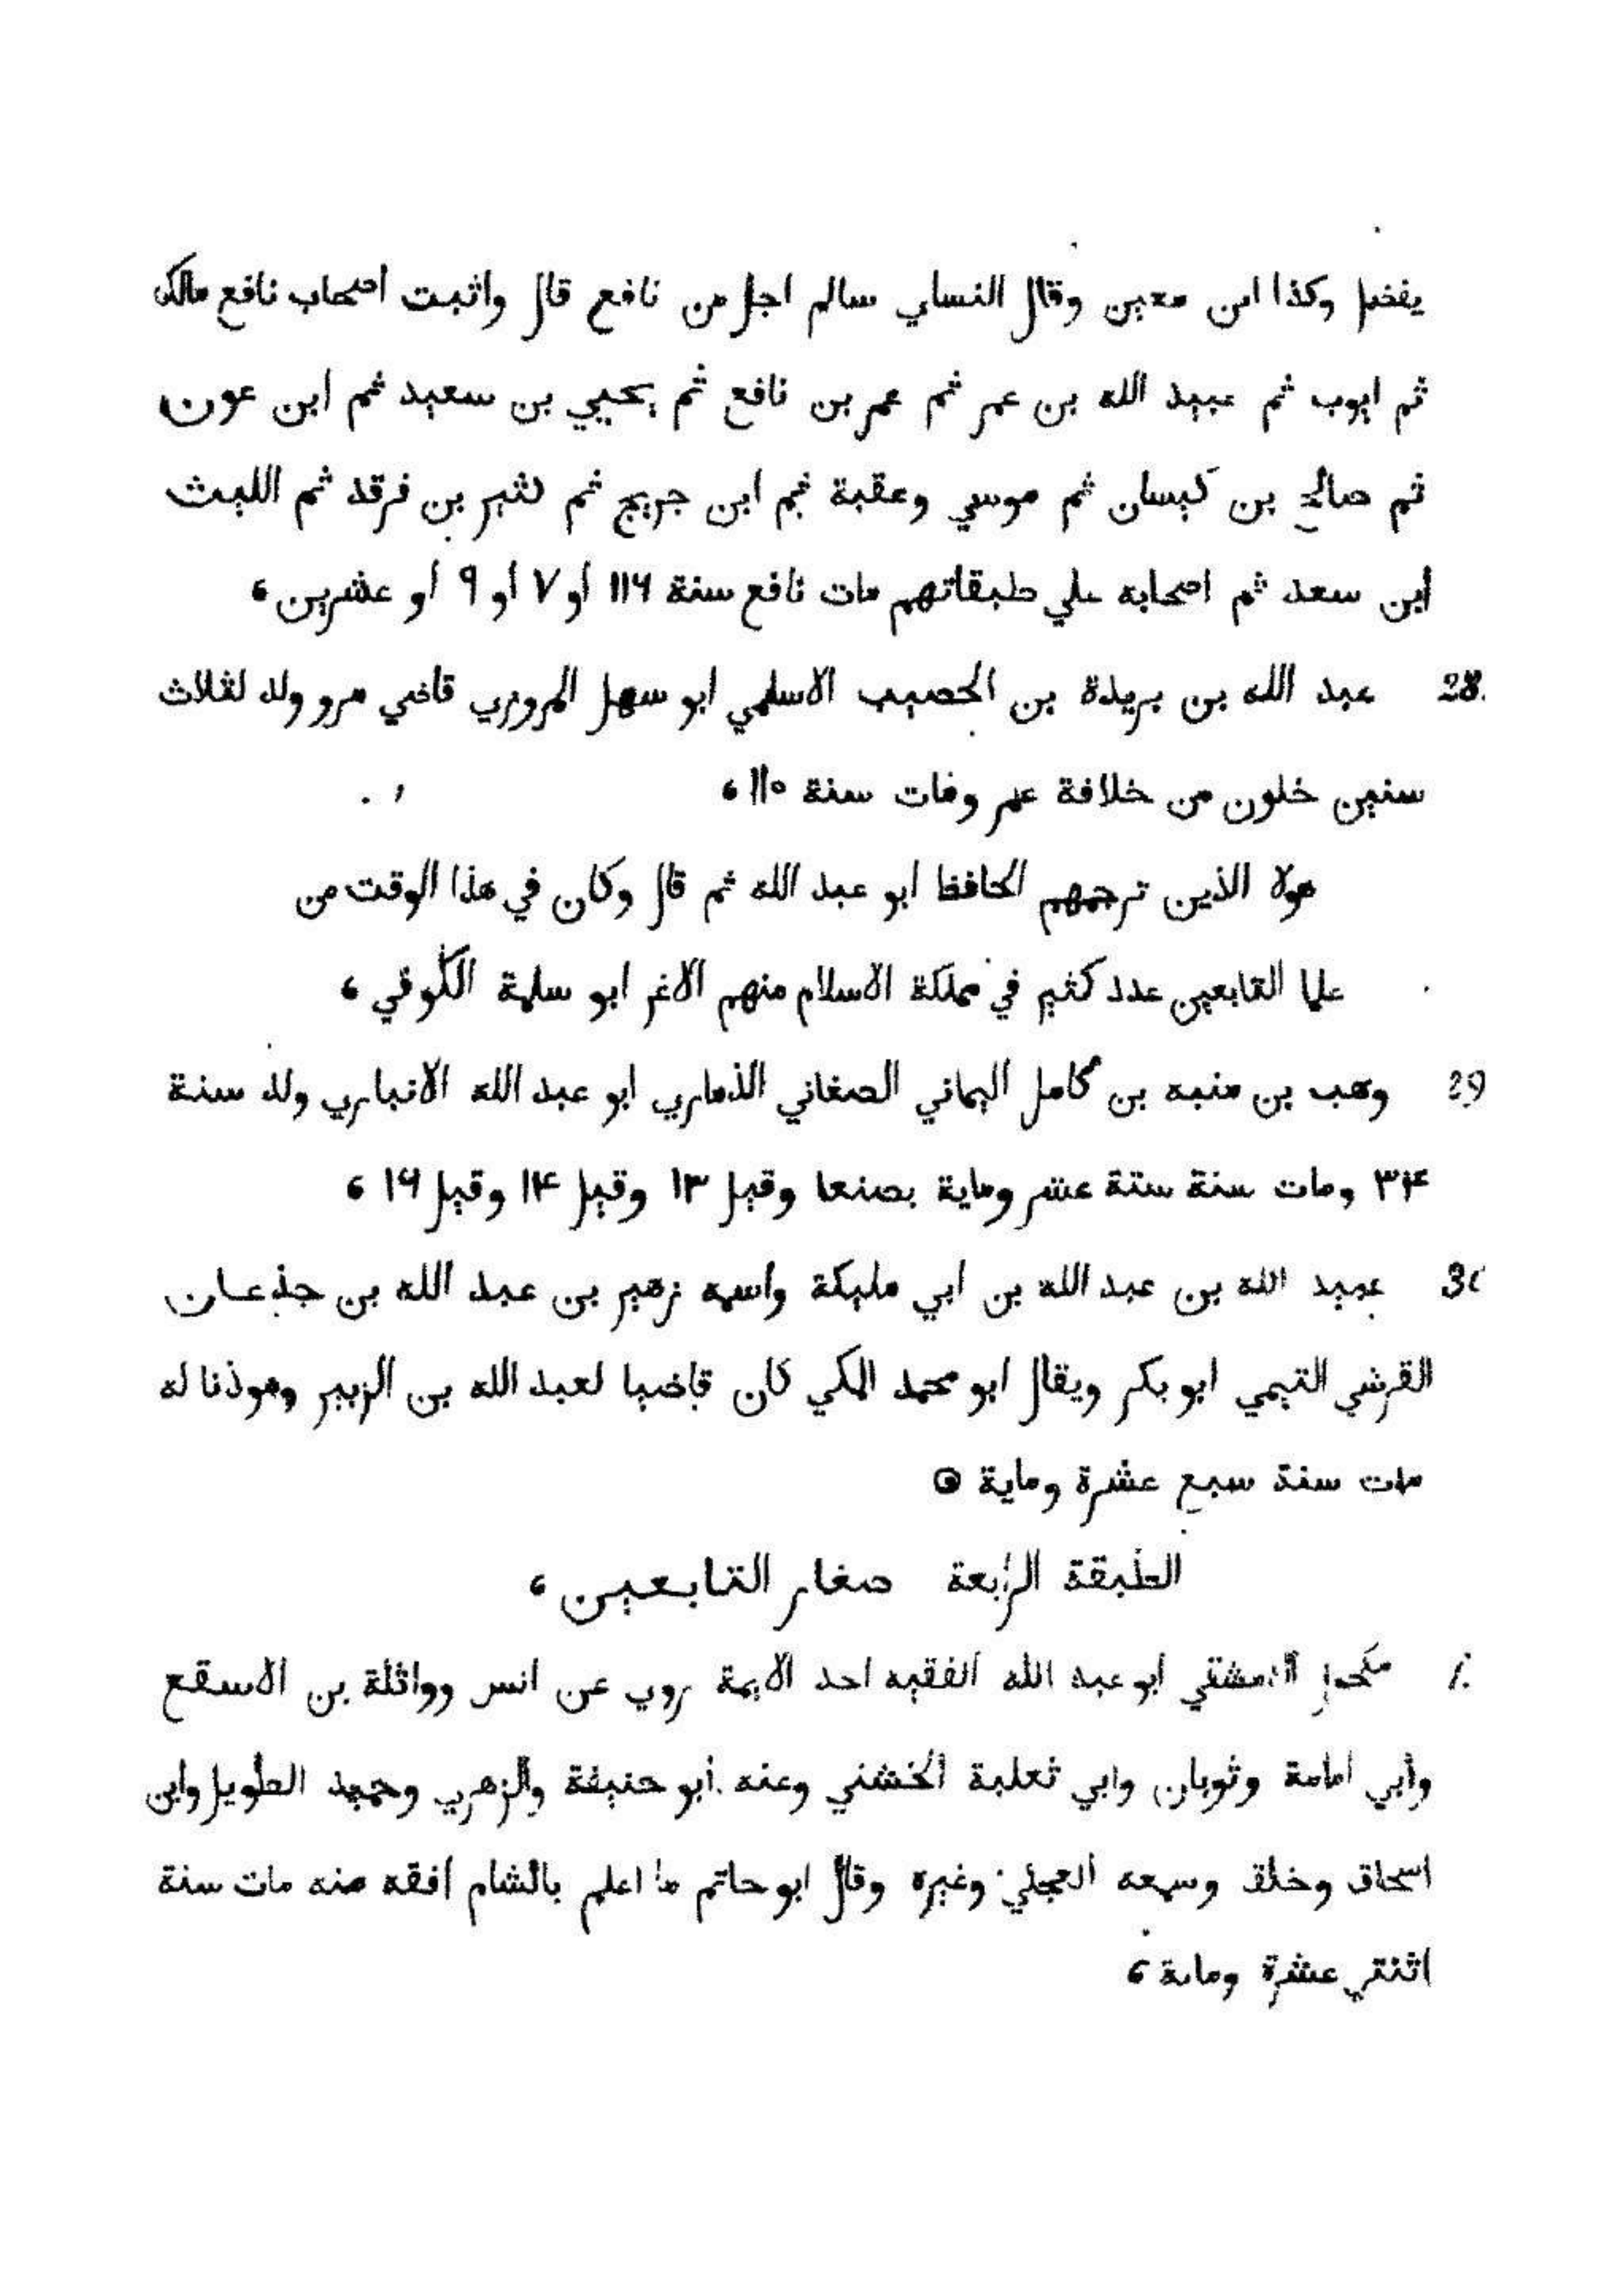 يفضل وكذا ابن معين وقال النساي سالم اجل من نافع قال واثبت اصحاب نافع مالك
ثم ايوب ثم عبيد الله بن عمر ثم عمر بن نافع ثم يحيي بن سعيد ثم ابن عون
ثم صالح بن كيسان ثم موسي وعقبة ثم ابن جريج ثم كثير بن فرقد ثم الليث
ابن سعد ثم اصحابه علي طبقاتهم مات نافع سنة ١١٦ او ٧ او ٩ او عشرين،
28. عبد الله بن بريدة بن الحصيب الاسلمي ابو سهل المروزي قاضي مرو ولد لثلاث
سنين خلون من خلافة عمر ومات سنة ١١٥،
هولا الذين ترجمهم الحافظ ابو عبد الله ثم قال وكان في هذا الوقت من
علما التابعين عدد كثير في مملكة الاسلام منهم الاغر ابو سلمة الكوفي،
29 وهب بن منبه بن كامل اليماني الصغاني الذماري ابو عبد الله الانباري ولد سنة
٣۴ ومات سنة ستة عشر وماية بصنعا وقيل ١٣ وقيل ١۴ وقيل ١٦،
30 عبيد الله بن عبد الله بن ابي مليكة واسمه زهير بن عبد الله بن جذعان
القرشي التيمي ابو بكر ويقال ابو محمد المكي كان قاضيا لعبد الله بن الزبير وموذنا له
مات سنة سبع عشرة وماية
الطبقة الرابعة صغار التابعين،
1. مكحول الدمشقي ابو عبد الله الفقيه احد الايمة روي عن انس وواثلة بن الاسقع
وأبي امامة وثوبان وابي ثعلبة الخشني وعنه أبو حنيفة والزهري وحميد الطويل وابن
اسحاق وخلق وسمعه العجلي وغيره وقال ابو حاتم ما اعلم بالشام افقه منه مات سنة
اثنتي عشرة وماية،